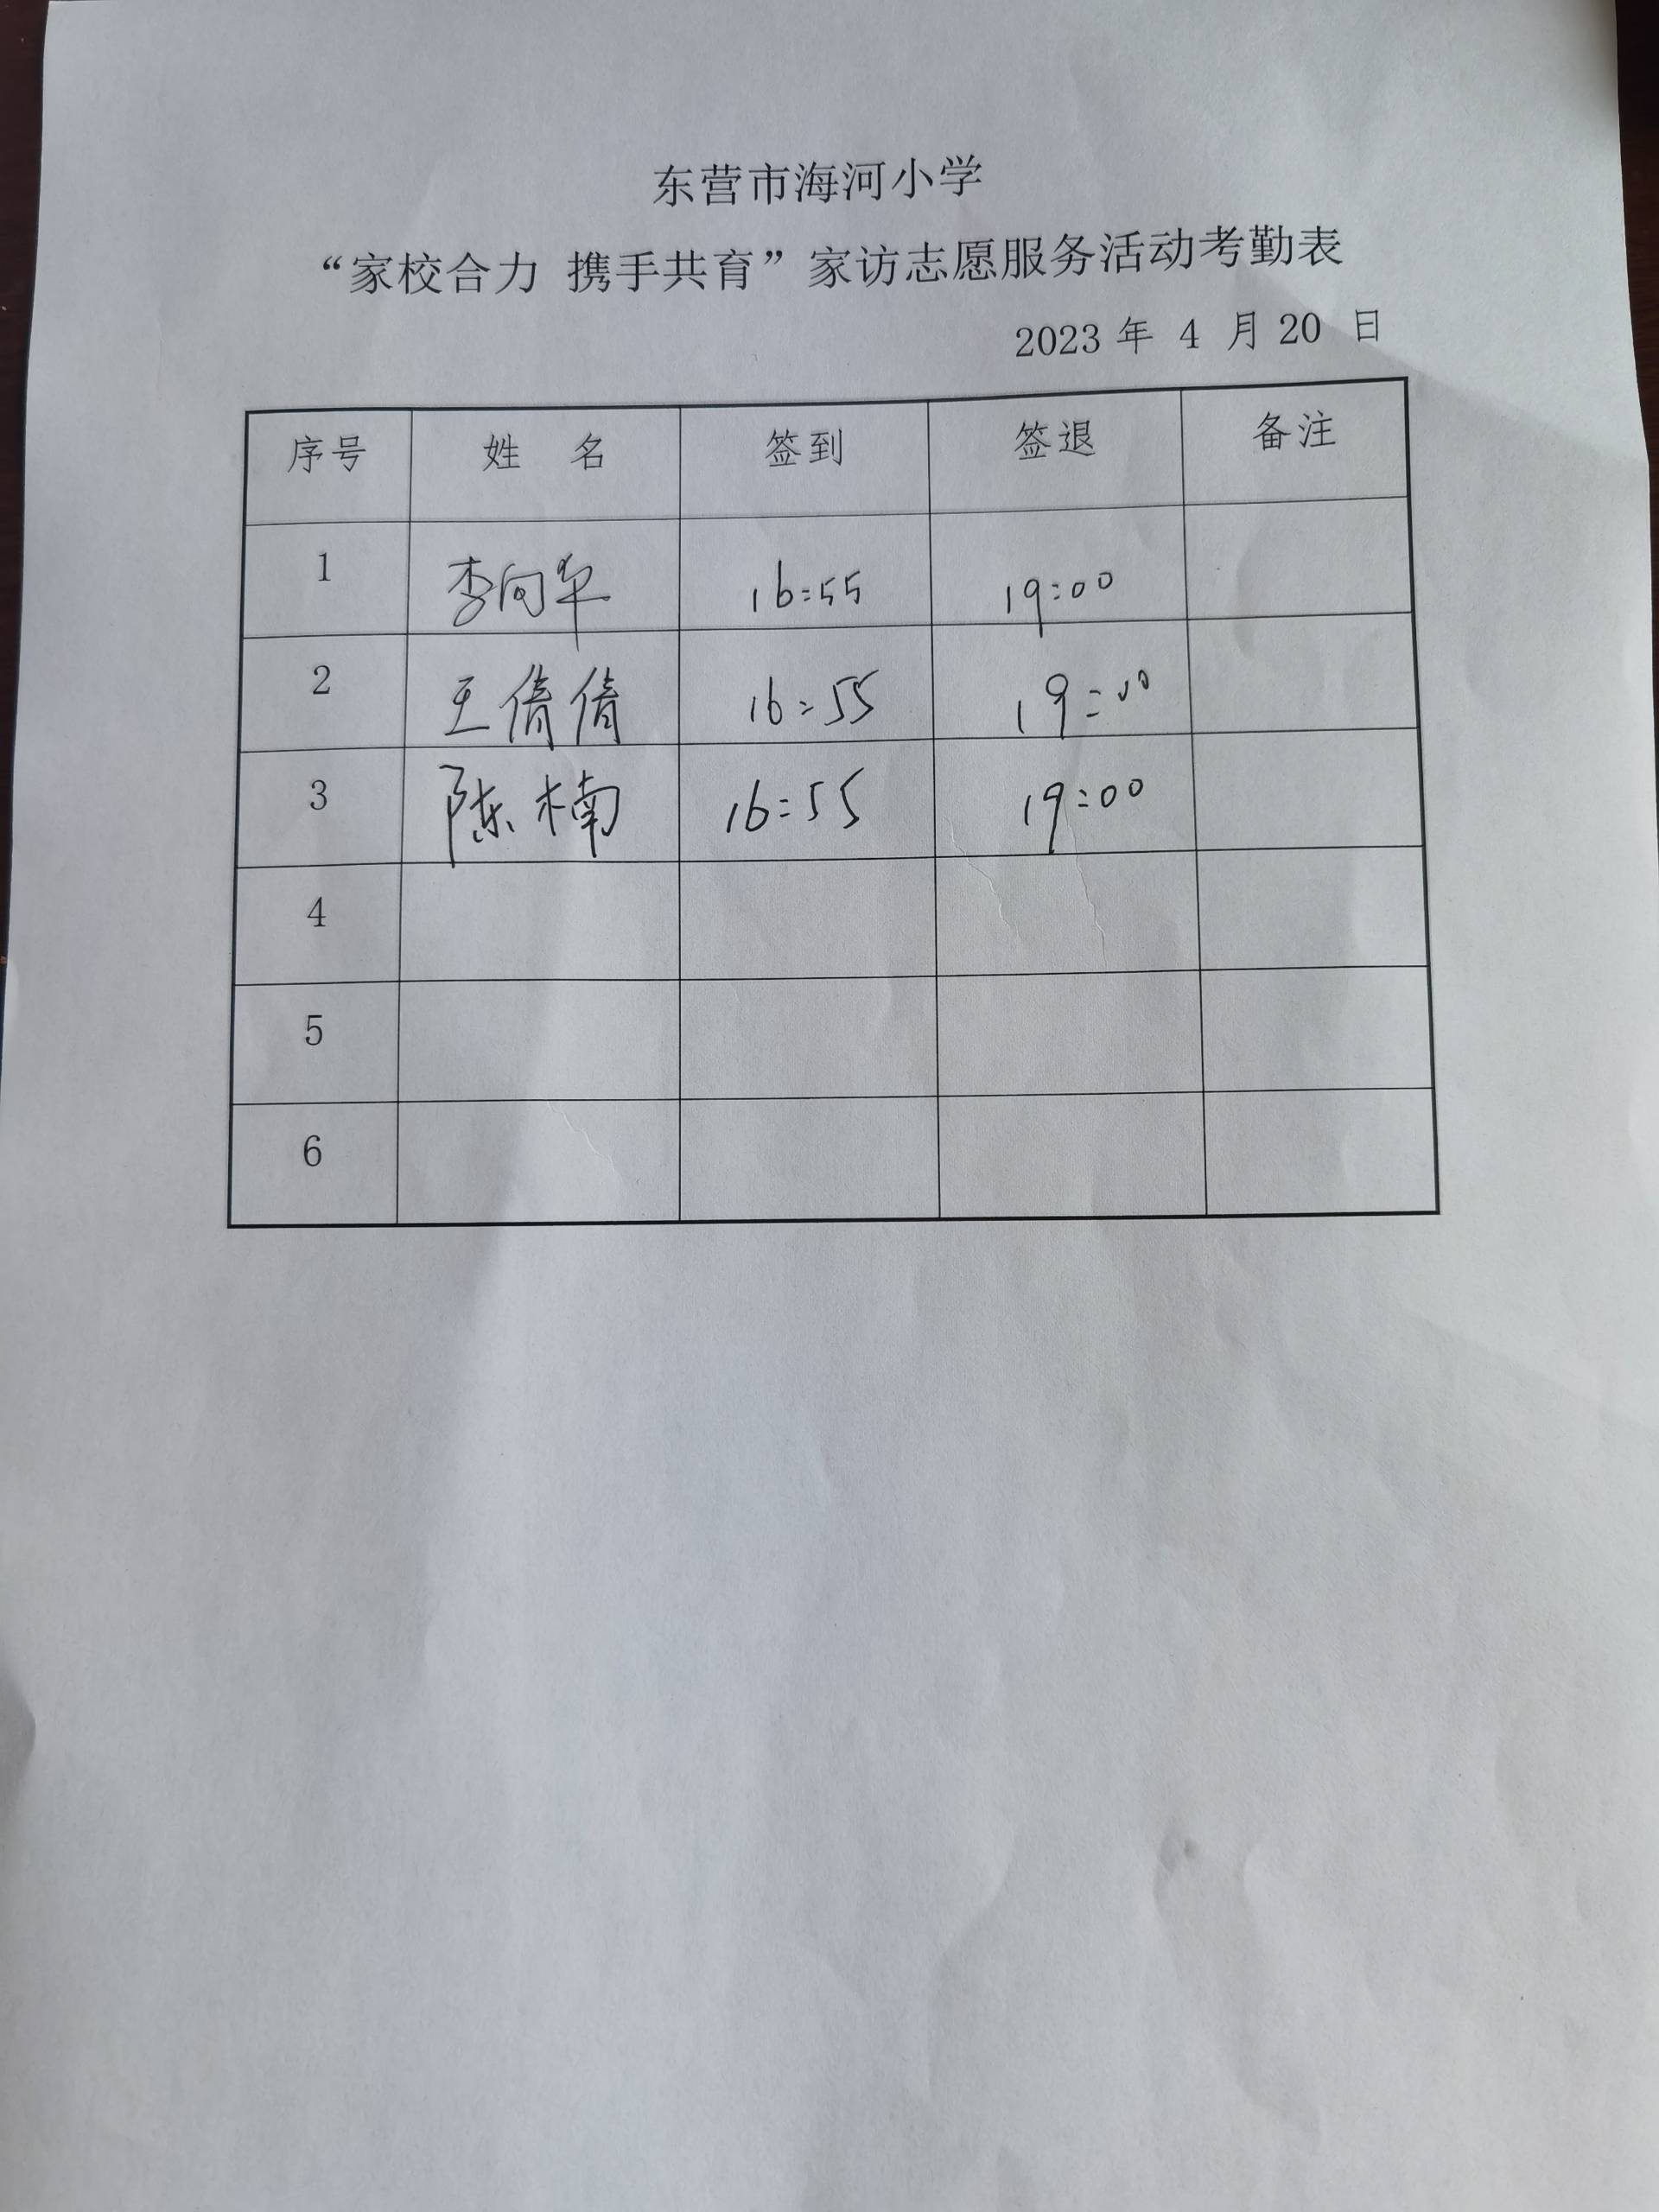 东营市海河小学
“家校合力 携手共育”家访志愿服务活动考勤表
2023 年 4 月 20 日
序号 姓 名 签到 签退 备注
1 李向军 16:55 19:00
2 王倩倩 16:55 19:00
3 陈楠 16:55 19:00
4
5
6